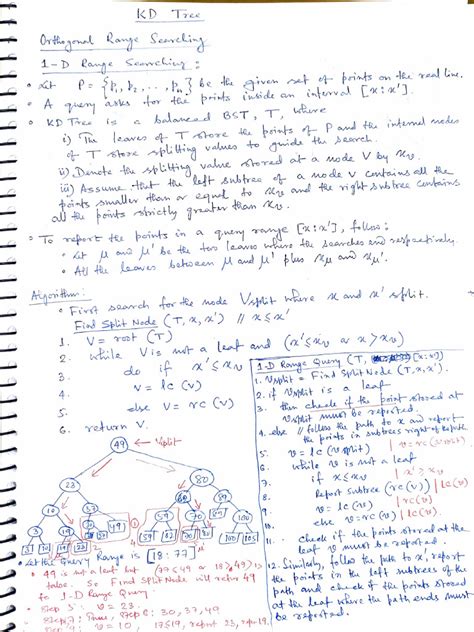 KD Tree
Orthogonal Range Searching
1-D Range Searching:
• Let P = {p1, p2, ..., pn} be the given set of points on the real line.
• A query asks for the points inside an interval [x:x'].
• KD Tree is a balanced BST, T, where
i) The leaves of T store the points of P and the internal nodes
of T store splitting values to guide the search.
ii) Denote the splitting value stored at a node V by xv
iii) Assume that the left subtree of a node v contains all the
points smaller than or equal to xv and the right subtree contains
all the points strictly greater than xv.
• To report the points in a query range [x:x'], follow:
• Let μ and μ' be the two leaves where the searches end respectively.
• All the leaves between μ and μ' plus xμ and xμ'.
Algorithm:
• First search for the node Vsplit where x and x' split.
Find Split Node (T, x, x') // x≤x'
1. V = root (T)
2. while V is not a leaf and (x'≤xv or x>xv)
3. do if x'≤xv
4. v = lc (v)
5. else v = rc (v)
6. return V.
1-D Range Query (T, [x:x'])
1. Vsplit = Find Split Node (T, x, x').
2. if Vsplit is a leaf
3. then check if the point stored at
Vsplit must be reported.
4. else // follow the path to x and report
the points in subtrees right of path
5. v = lc (vsplit) | v = rc (vsplit)
6. while v is not a leaf
7. if x≤xv | x'>xv
8. Report subtree (rc(v)) | lc(v)
9. v = lc (v) | rc(v)
10. else v = rc(v) | lc(v)
11. check if the point stored at the
leaf v must be reported.
12. Similarly, follow the path to x', report
the points in the left subtrees of the
path and check if the points stored
at the leaf where the path ends must
be reported.
49 ← Vsplit
23 80
10 37 80
3 19 30 49 59 70 89 100
• Let the Query Range is [18:77]
• 49 is not a leaf but (77≤49 or 18>49) is
false. So Find Split Node will return 49
to 1-D Range Query.
• Step 5: v = 23.